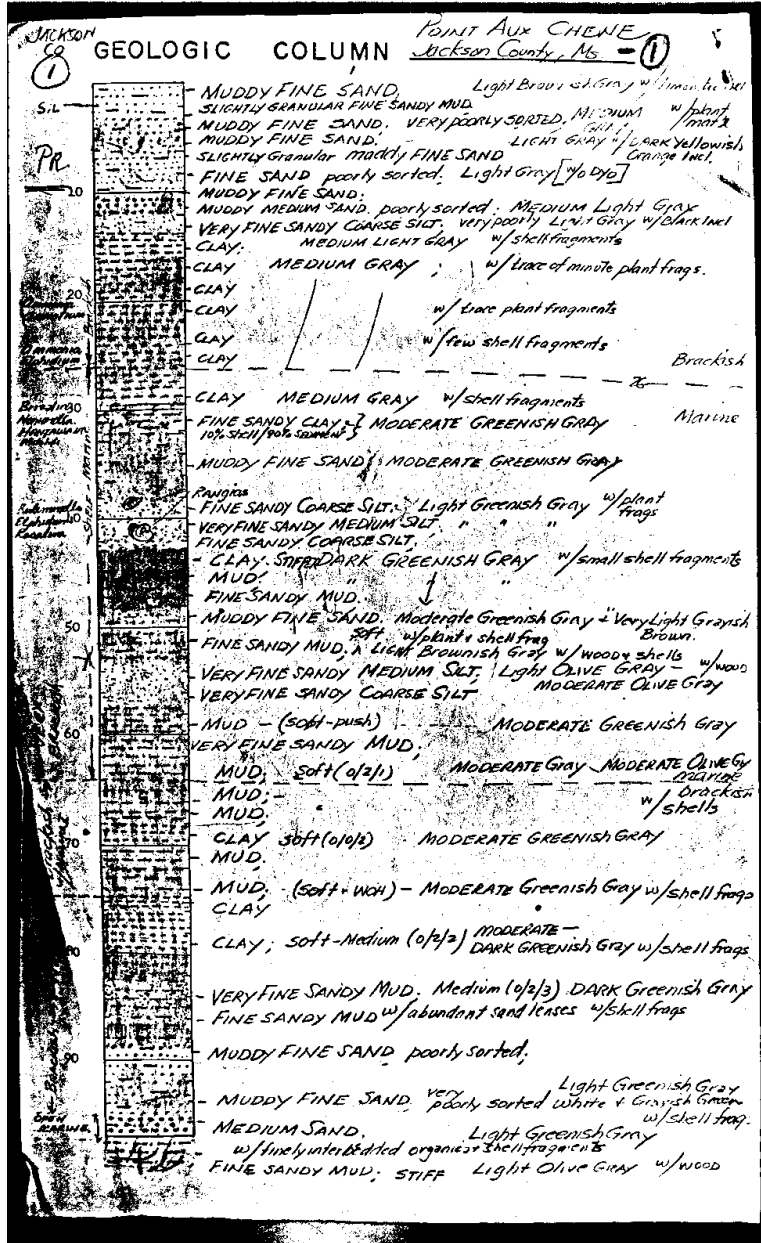 JACKSON
CO
1
POINT AUX CHENE
GEOLOGIC COLUMN Jackson County, Ms. - 1
MUDDY FINE SAND. Light Brownish Gray w/
SIL
SLIGHTLY GRANULAR FINE SANDY MUD w/plant
MUDDY FINE SAND. VERY POORLY SORTED. MEDIUM
MUDDY FINE SAND. LIGHT GRAY w/DARK Yellowish
Orange Incl.
PR
SLIGHTLY Granular muddy FINE SAND
FINE SAND poorly sorted. Light Gray [w/o Dyo]
10
MUDDY FINE SAND.
MUDDY MEDIUM SAND. poorly sorted. MEDIUM Light Gray
VERY FINE SANDY COARSE SILT. very poorly Light Gray w/Black Incl
CLAY. MEDIUM LIGHT GRAY w/shell fragments
CLAY MEDIUM GRAY ; w/trace of minute plant frags.
CLAY
20
CLAY w/ trace plant fragments
CLAY w/few shell fragments
Ammonia
CLAY
Brackish
CLAY MEDIUM GRAY w/shell fragments
30
Marine
FINE SANDY CLAY. } MODERATE GREENISH GRAY
10% shell/90% sediment
MUDDY FINE SAND; MODERATE GREENISH GRAY
Rangias
FINE SANDY COARSE SILT. Light Greenish Gray w/plant
frags
VERY FINE SANDY MEDIUM SILT, " " "
FINE SANDY COARSE SILT,
CLAY. STIFF DARK GREENISH GRAY w/small shell fragments
MUD. " "
FINE SANDY MUD.
MUDDY FINE SAND. Moderate Greenish Gray + Very Light Grayish
Brown.
50
soft w/plant + shell frag
FINE SANDY MUD. Light Brownish Gray w/WOOD + shells
VERY FINE SANDY MEDIUM SILT. Light OLIVE GRAY - w/WOOD
VERY FINE SANDY COARSE SILT MODERATE OLIVE Gray
MUD - (soft-push) - MODERATE GREENISH Gray
60
VERY FINE SANDY MUD;
MUD, soft (0/2/1) MODERATE Gray - MODERATE OLIVE Gy
marine
brackish
MUD;
w/shells
MUD.
CLAY soft (0/0/2) MODERATE GREENISH GRAY
70
MUD.
MUD; (soft - WOH) - MODERATE Greenish Gray w/shell frags
CLAY
CLAY; soft-Medium (0/2/2) MODERATE -
DARK GREENISH Gray w/shell frags
80
VERY FINE SANDY MUD. Medium (0/2/3) DARK Greenish Gray
FINE SANDY MUD w/abundant sand lenses w/shell frags
90
MUDDY FINE SAND poorly sorted;
Light Greenish Gray
MUDDY FINE SAND. very poorly sorted White + Grayish Green
w/shell frag.
OPEN
MARINE
MEDIUM SAND. Light Greenish Gray
w/finely interbedded organics + shell fragments
FINE SANDY MUD; STIFF Light Olive GRAY w/WOOD